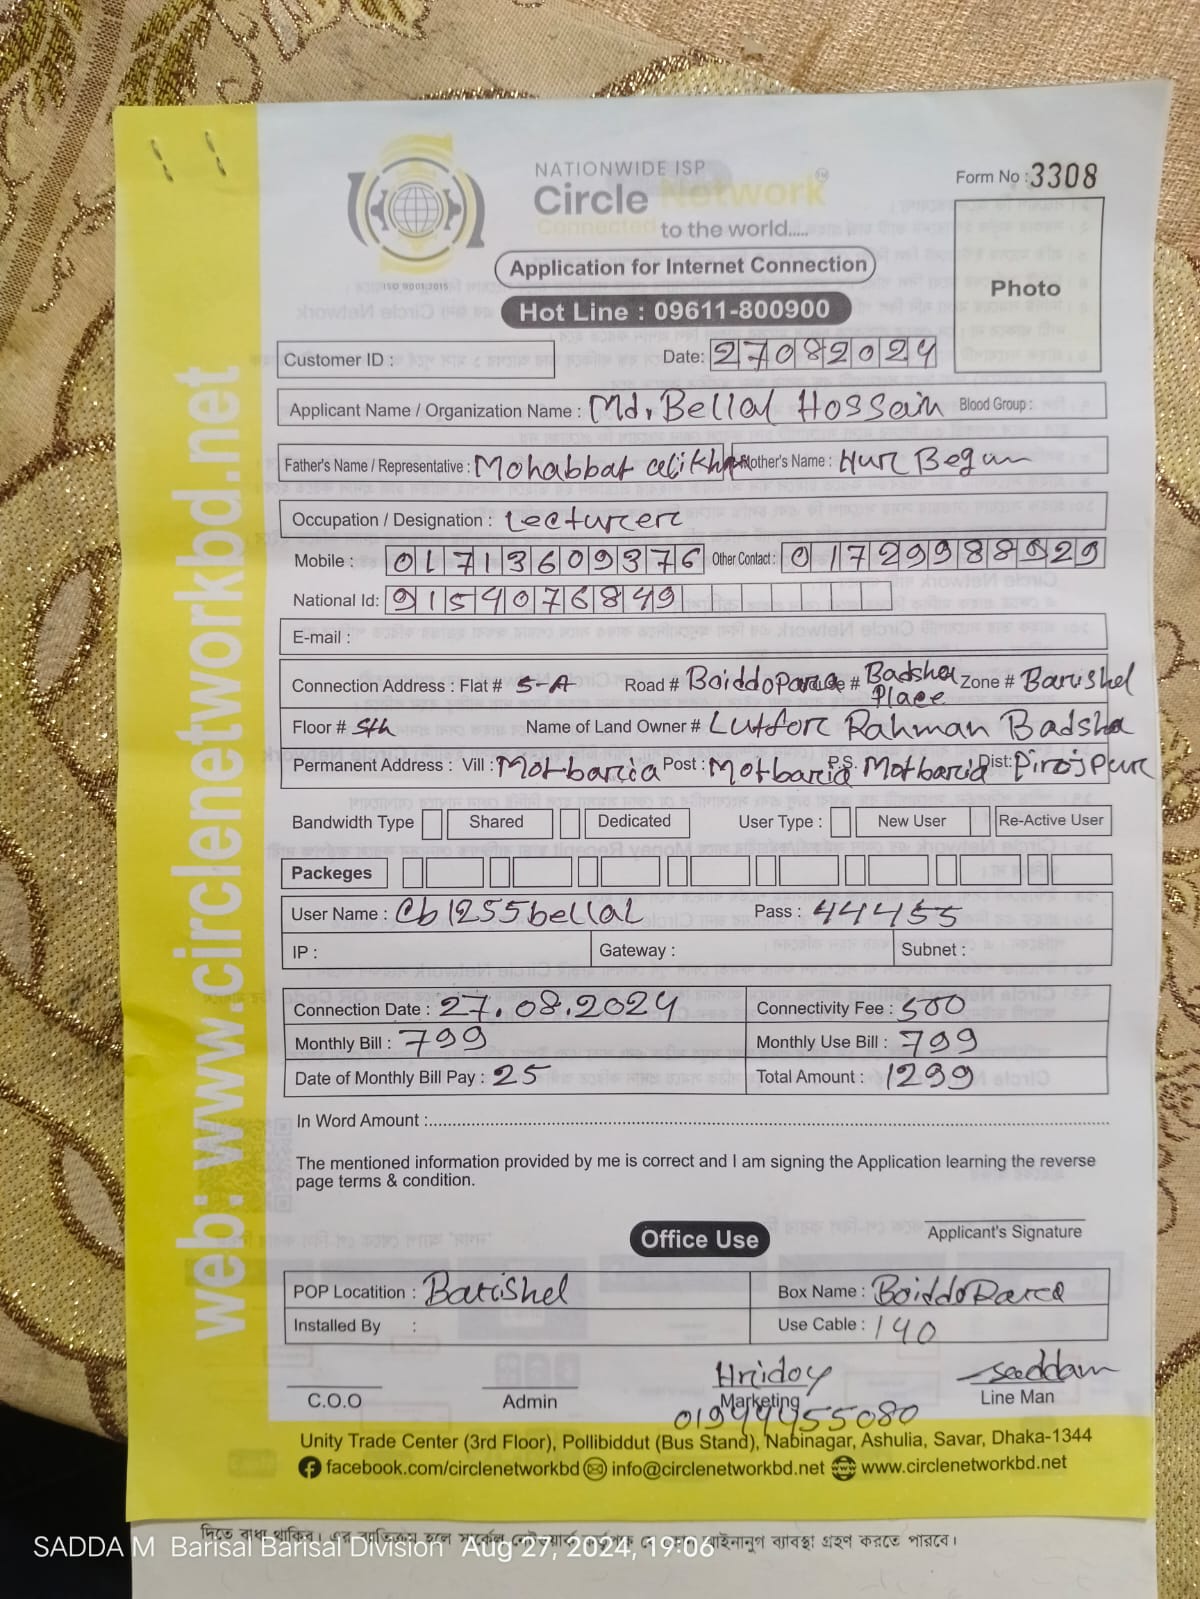 NATIONWIDE ISP
Circle Network
Connected to the world.....
ISO 9001:2015
Form No : 3308
Application for Internet Connection
Hot Line : 09611-800900
Photo
Customer ID :
Date: 27082024
Applicant Name / Organization Name : Md. Bellal Hossain Blood Group :
Father's Name / Representative : Mohabbat ali khan Mother's Name : Nur Begum
Occupation / Designation : Lecturer
Mobile : 01713609376 Other Contact : 01729988929
National Id: 9154076849
E-mail :
Connection Address : Flat # 5-A Road # Boiddopara House # Badsha Place Zone # Barishal
Floor # 5th Name of Land Owner # Lutfor Rahman Badsha
Permanent Address : Vill : Motbaria Post : Motbaria P.S. Motbaria Dist: Pirojpur
Bandwidth Type Shared Dedicated User Type : New User Re-Active User
Packeges
User Name : Cb1255bellal Pass : 44455
IP : Gateway : Subnet :
Connection Date : 27.08.2024 Connectivity Fee : 500
Monthly Bill : 799 Monthly Use Bill : 799
Date of Monthly Bill Pay : 25 Total Amount : 1299
In Word Amount :
The mentioned information provided by me is correct and I am signing the Application learning the reverse
page terms & condition.
Applicant's Signature
Office Use
POP Locatition : Barishal Box Name : Boiddopara
Installed By : Use Cable : 140
Hridoy saddam
C.O.O Admin Marketing Line Man
01944455080
Unity Trade Center (3rd Floor), Pollibiddut (Bus Stand), Nabinagar, Ashulia, Savar, Dhaka-1344
facebook.com/circlenetworkbd info@circlenetworkbd.net www.circlenetworkbd.net
web: www.circlenetworkbd.net
দিতে বাধ্য থাকিব। এর ব্যতিক্রম হলে সার্কেল নেটওয়ার্ক কর্তৃপক্ষ যে কোন আইনানুগ ব্যাবস্থা গ্রহণ করতে পারবে।
SADDA M Barisal Barisal Division Aug 27, 2024, 19:06